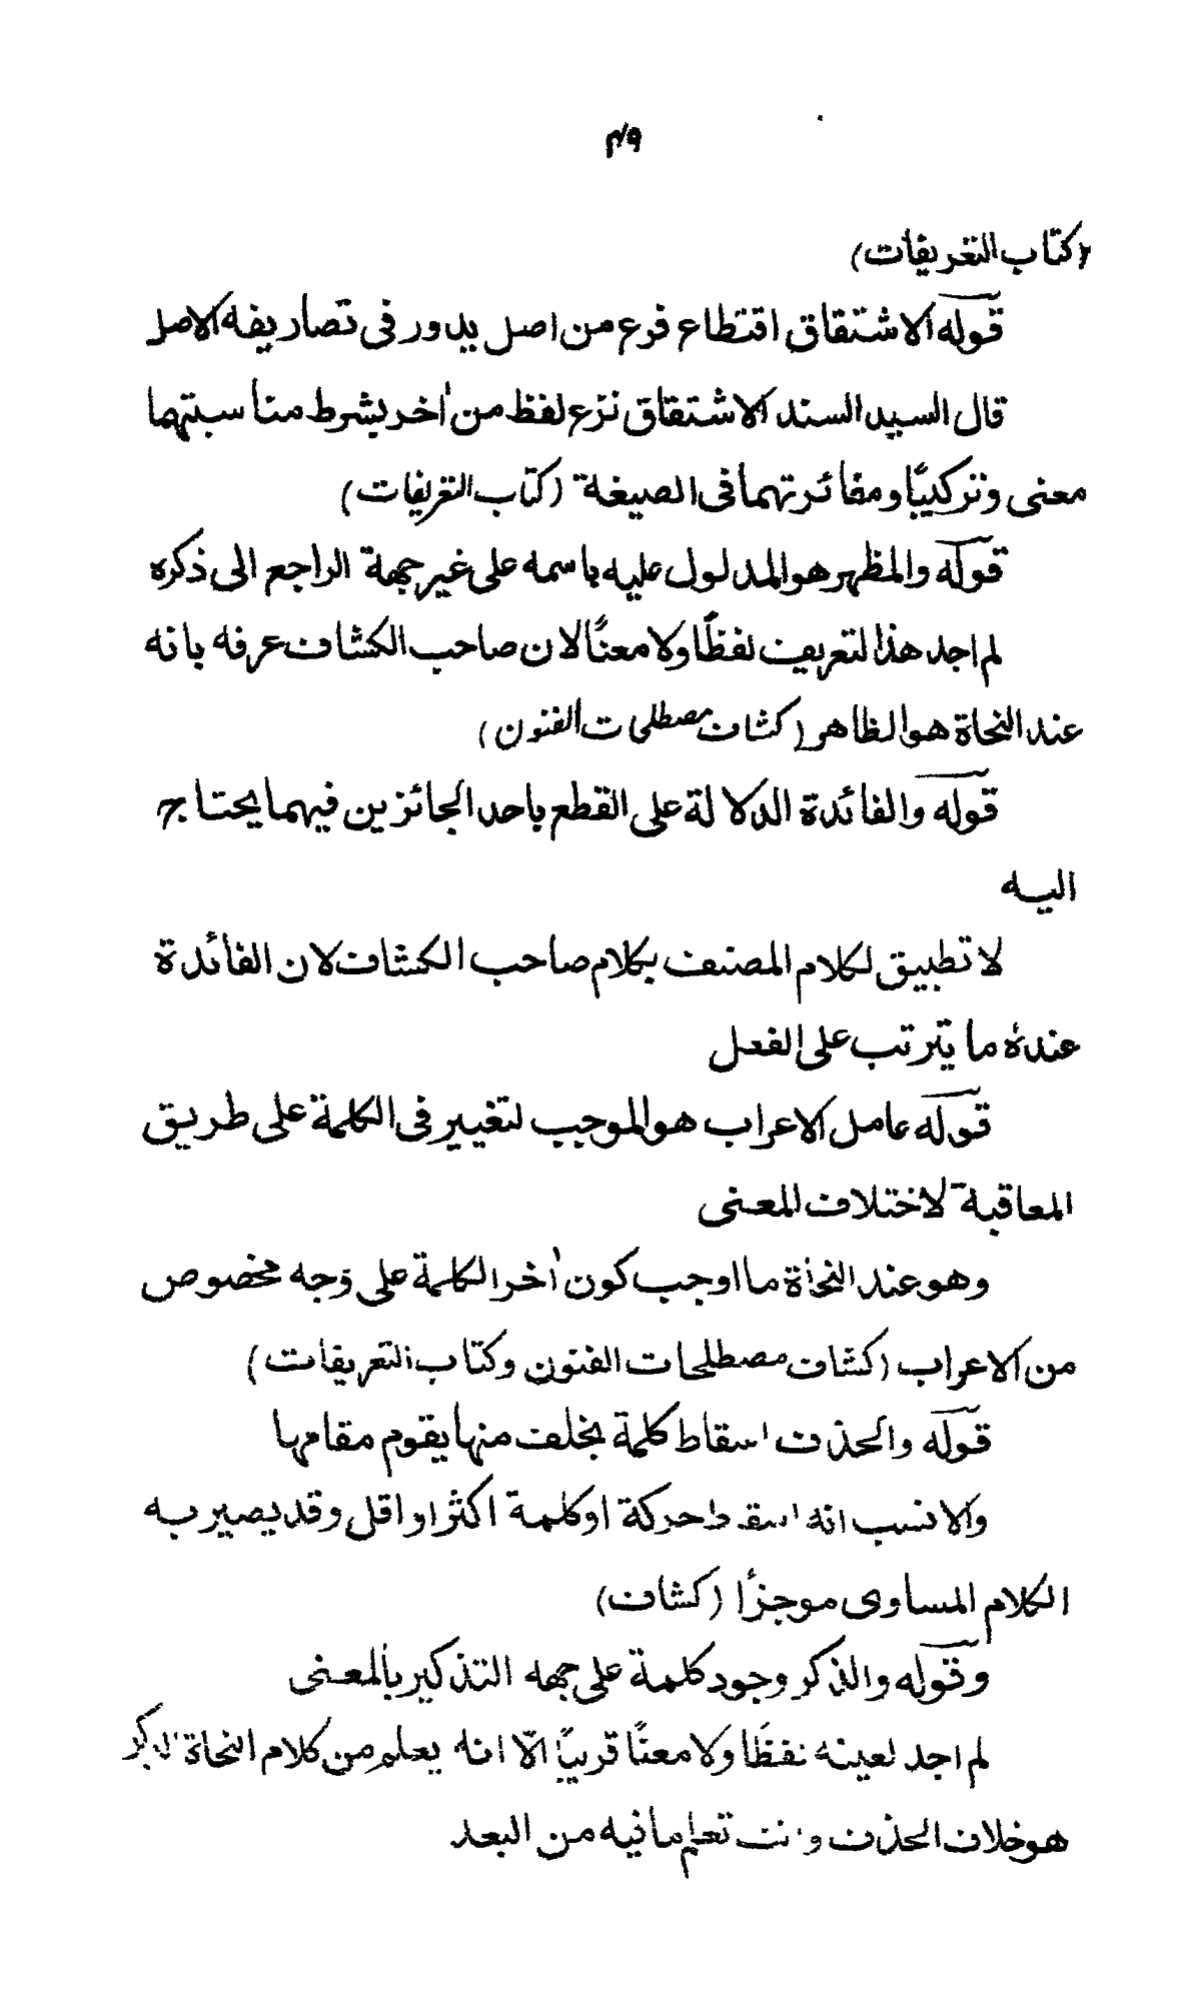 ۴۹
(كتاب التعريفات)
قوله الاشتقاق اقتطاع فرع من اصل يدور فى تصاريفه الاصل
قال السيد السند الاشتقاق نزع لفظ من اٰخر بشرط مناسبتهما
معنى وتركيبًا ومغائرتهما فى الصيغة (كتاب التعريفات)
قوله والمظهر هو المدلول عليه باسمه على غير جهة الراجع الى ذكره
لم اجد هذا التعريف لفظًا ولا معنًا لان صاحب الكشاف عرفه بانه
عند النحاة هو الظاهر (كشاف مصطلحات الفنون)
قوله والفائدة الدلالة على القطع باحد الجائزين فيهما يحتاج
اليه
لا تطبيق لكلام المصنف بكلام صاحب الكشاف لان الفائدة
عندهٗ ما يترتب على الفعل
قوله عامل الاعراب هو الموجب لتغيير فى الكلمة على طريق
المعاقبة لاختلاف المعنى
وهو عند النحاة ما اوجب كون اٰخر الكلمة على وجه مخصوص
من الاعراب (كشاف مصطلحات الفنون وكتاب التعريفات)
قوله والحذف اسقاط كلمة بخلف منها يقوم مقامها
والانسب انه اسقاط حركة او كلمة اكثر او اقل وقد يصير به
الكلام المساوى موجزًا (كشاف)
وقوله والذكر وجود كلمة على جهه التذكير بالمعنى
لم اجد لعينه لفظًا ولا معنًا قريبًا الّا انه يعلم من كلام النحاة الذكر
هو خلاف الحذف وانت تعلم مافيه من البعد